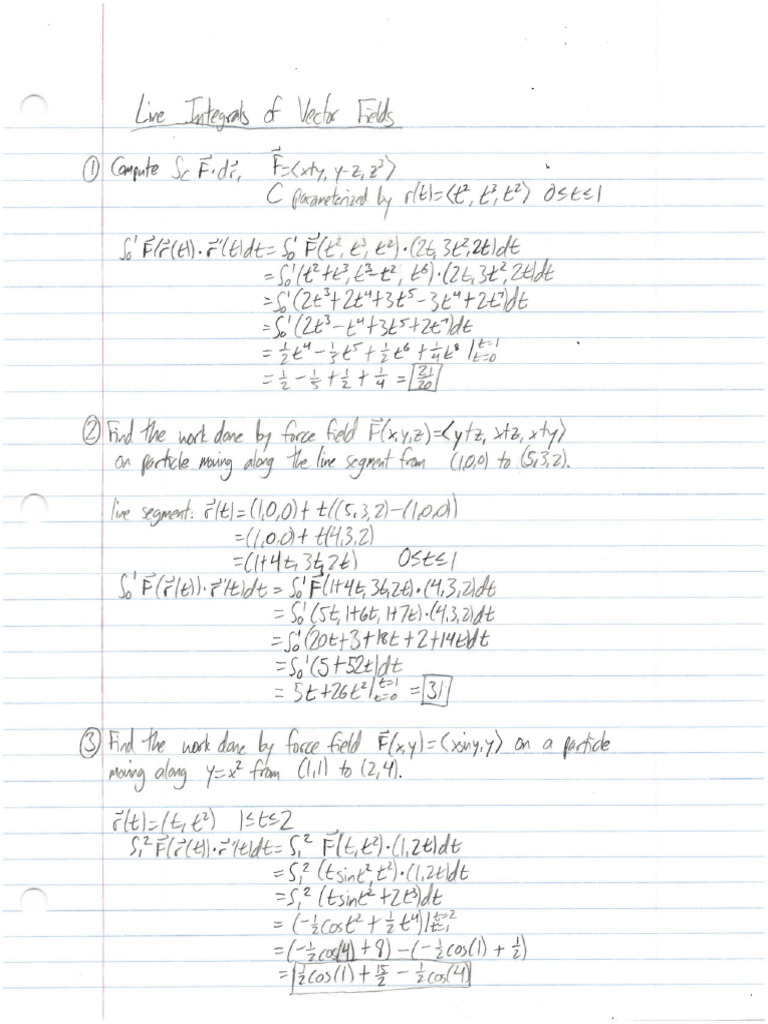 Line Integrals of Vector Fields
① Compute ∫c F⃗·dr⃗, F⃗=⟨x+y, y-z, z³⟩
C parameterized by r(t)=⟨t², t³, t²⟩ 0≤t≤1
∫₀¹ F⃗(r⃗(t))·r⃗'(t)dt = ∫₀¹ F⃗(t², t³, t²)·(2t, 3t², 2t)dt
= ∫₀¹ (t²+t³, t³-t², t⁶)·(2t, 3t², 2t)dt
= ∫₀¹ (2t³+2t⁴+3t⁵-3t⁴+2t⁷)dt
= ∫₀¹ (2t³-t⁴+3t⁵+2t⁷)dt
= ½t⁴ - ⅕t⁵ + ½t⁶ + ¼t⁸ |ₜ₌₀ᵗ⁼¹
= ½ - ⅕ + ½ + ¼ = 21/20
② Find the work done by force field F⃗(x,y,z)=⟨y+z, x+z, x+y⟩
on particle moving along the line segment from (1,0,0) to (5,3,2).
line segment: r⃗(t)=(1,0,0)+t((5,3,2)-(1,0,0))
=(1,0,0)+t(4,3,2)
=(1+4t, 3t, 2t) 0≤t≤1
∫₀¹ F⃗(r⃗(t))·r⃗'(t)dt = ∫₀¹ F⃗(1+4t, 3t, 2t)·(4,3,2)dt
= ∫₀¹ (5t, 1+6t, 1+7t)·(4,3,2)dt
= ∫₀¹ (20t+3+18t+2+14t)dt
= ∫₀¹ (5+52t)dt
= 5t+26t² |ₜ₌₀ᵗ⁼¹ = 31
③ Find the work done by force field F⃗(x,y)=⟨xsiny, y⟩ on a particle
moving along y=x² from (1,1) to (2,4).
r⃗(t)=(t, t²) 1≤t≤2
∫₁² F⃗(r⃗(t))·r⃗'(t)dt = ∫₁² F⃗(t, t²)·(1, 2t)dt
= ∫₁² (tsint², t²)·(1, 2t)dt
= ∫₁² (tsint²+2t³)dt
= (-½cost² + ½t⁴)|ₜ₌₁ᵗ⁼²
= (-½cos(4)+8) - (-½cos(1)+½)
= ½cos(1) + 15/2 - ½cos(4)